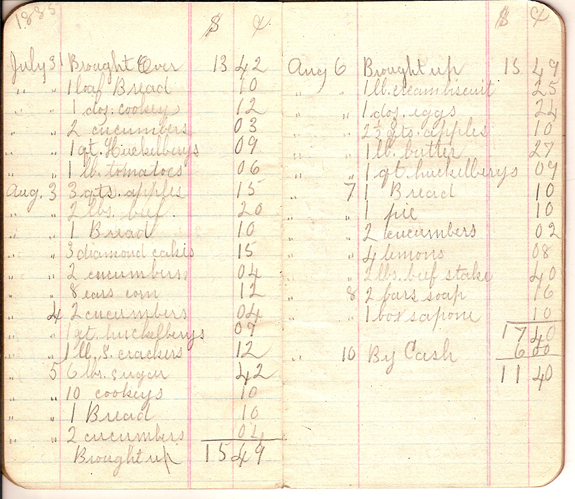 1885
$ ¢
July 31 Brought Over 13 42
" " 1 loaf Bread 10
" " 1 doz. cookeys 12
" " 2 cucumbers 03
" " 1 qt. Huckelberys 09
" " 1 lb. tomatoes 06
Aug. 3 3 qts. apples 15
" " 2 lbs. beef 20
" " 1 Bread 10
" " 3 diamond cakes 15
" " 2 cucumbers 04
" " 8 ears corn 12
" 4 2 cucumbers 04
" " 1 qt. huckelberys 09
" " 1 lb. S. crackers 12
" 5 6 lbs. sugar 42
" " 10 cookeys 10
" " 1 Bread 10
" " 2 cucumbers 04
Brought up 15 49
$ ¢
Aug 6 Brought up 15 49
" " 1 lb. cream biscuit 25
" " 1 doz. eggs 24
" " 2 qts. apples 10
" " 1 lb. butter 27
" " 1 qt. huckelberys 09
" 7 1 Bread 10
" " 1 pie 10
" " 2 cucumbers 02
" " 4 lemons 08
" " 2 lbs. beef stake 40
" 8 2 bars soap 16
" " 1 box sapone 10
17 40
" 10 By Cash 6 00
11 40